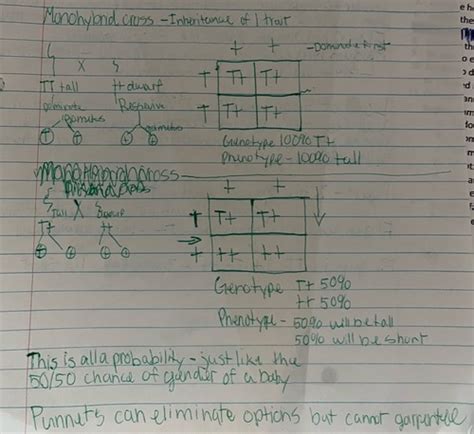 Monohybrid cross - Inheritance of 1 trait
t t - Dominate first
T Tt Tt
T Tt Tt
X
TT tall tt dwarf
Dominate Ressesive
gametes gametes
T T t t
Genotype 100% Tt
Phenotype - 100% tall
t t
T Tt Tt
t tt tt
Tall X Dwarf
Tt tt
Genotype Tt 50%
tt 50%
Phenotype - 50% will be tall
50% will be short
This is all a probability - just like the
50/50 chance of gender of a baby
Punnets can eliminate options but cannot